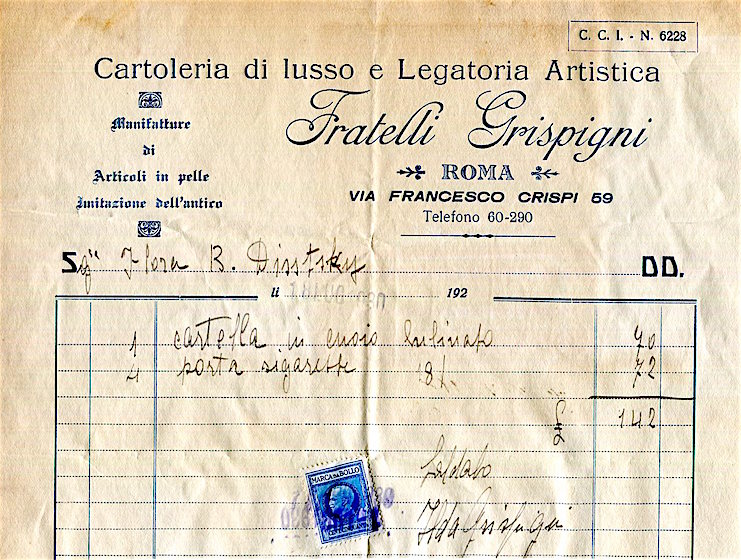 C. C. I. - N. 6228
Cartoleria di lusso e Legatoria Artistica
Manifatture
di
Articoli in pelle
Imitazione dell'antico
Fratelli Grispigni
ROMA
VIA FRANCESCO CRISPI 59
Telefono 60-290
Flora B. DD.
li 192
1 cartella in cuoio 70
4 porta sigarette 18 72
142
MARCA DA BOLLO
Saldato
Ida Grispigni